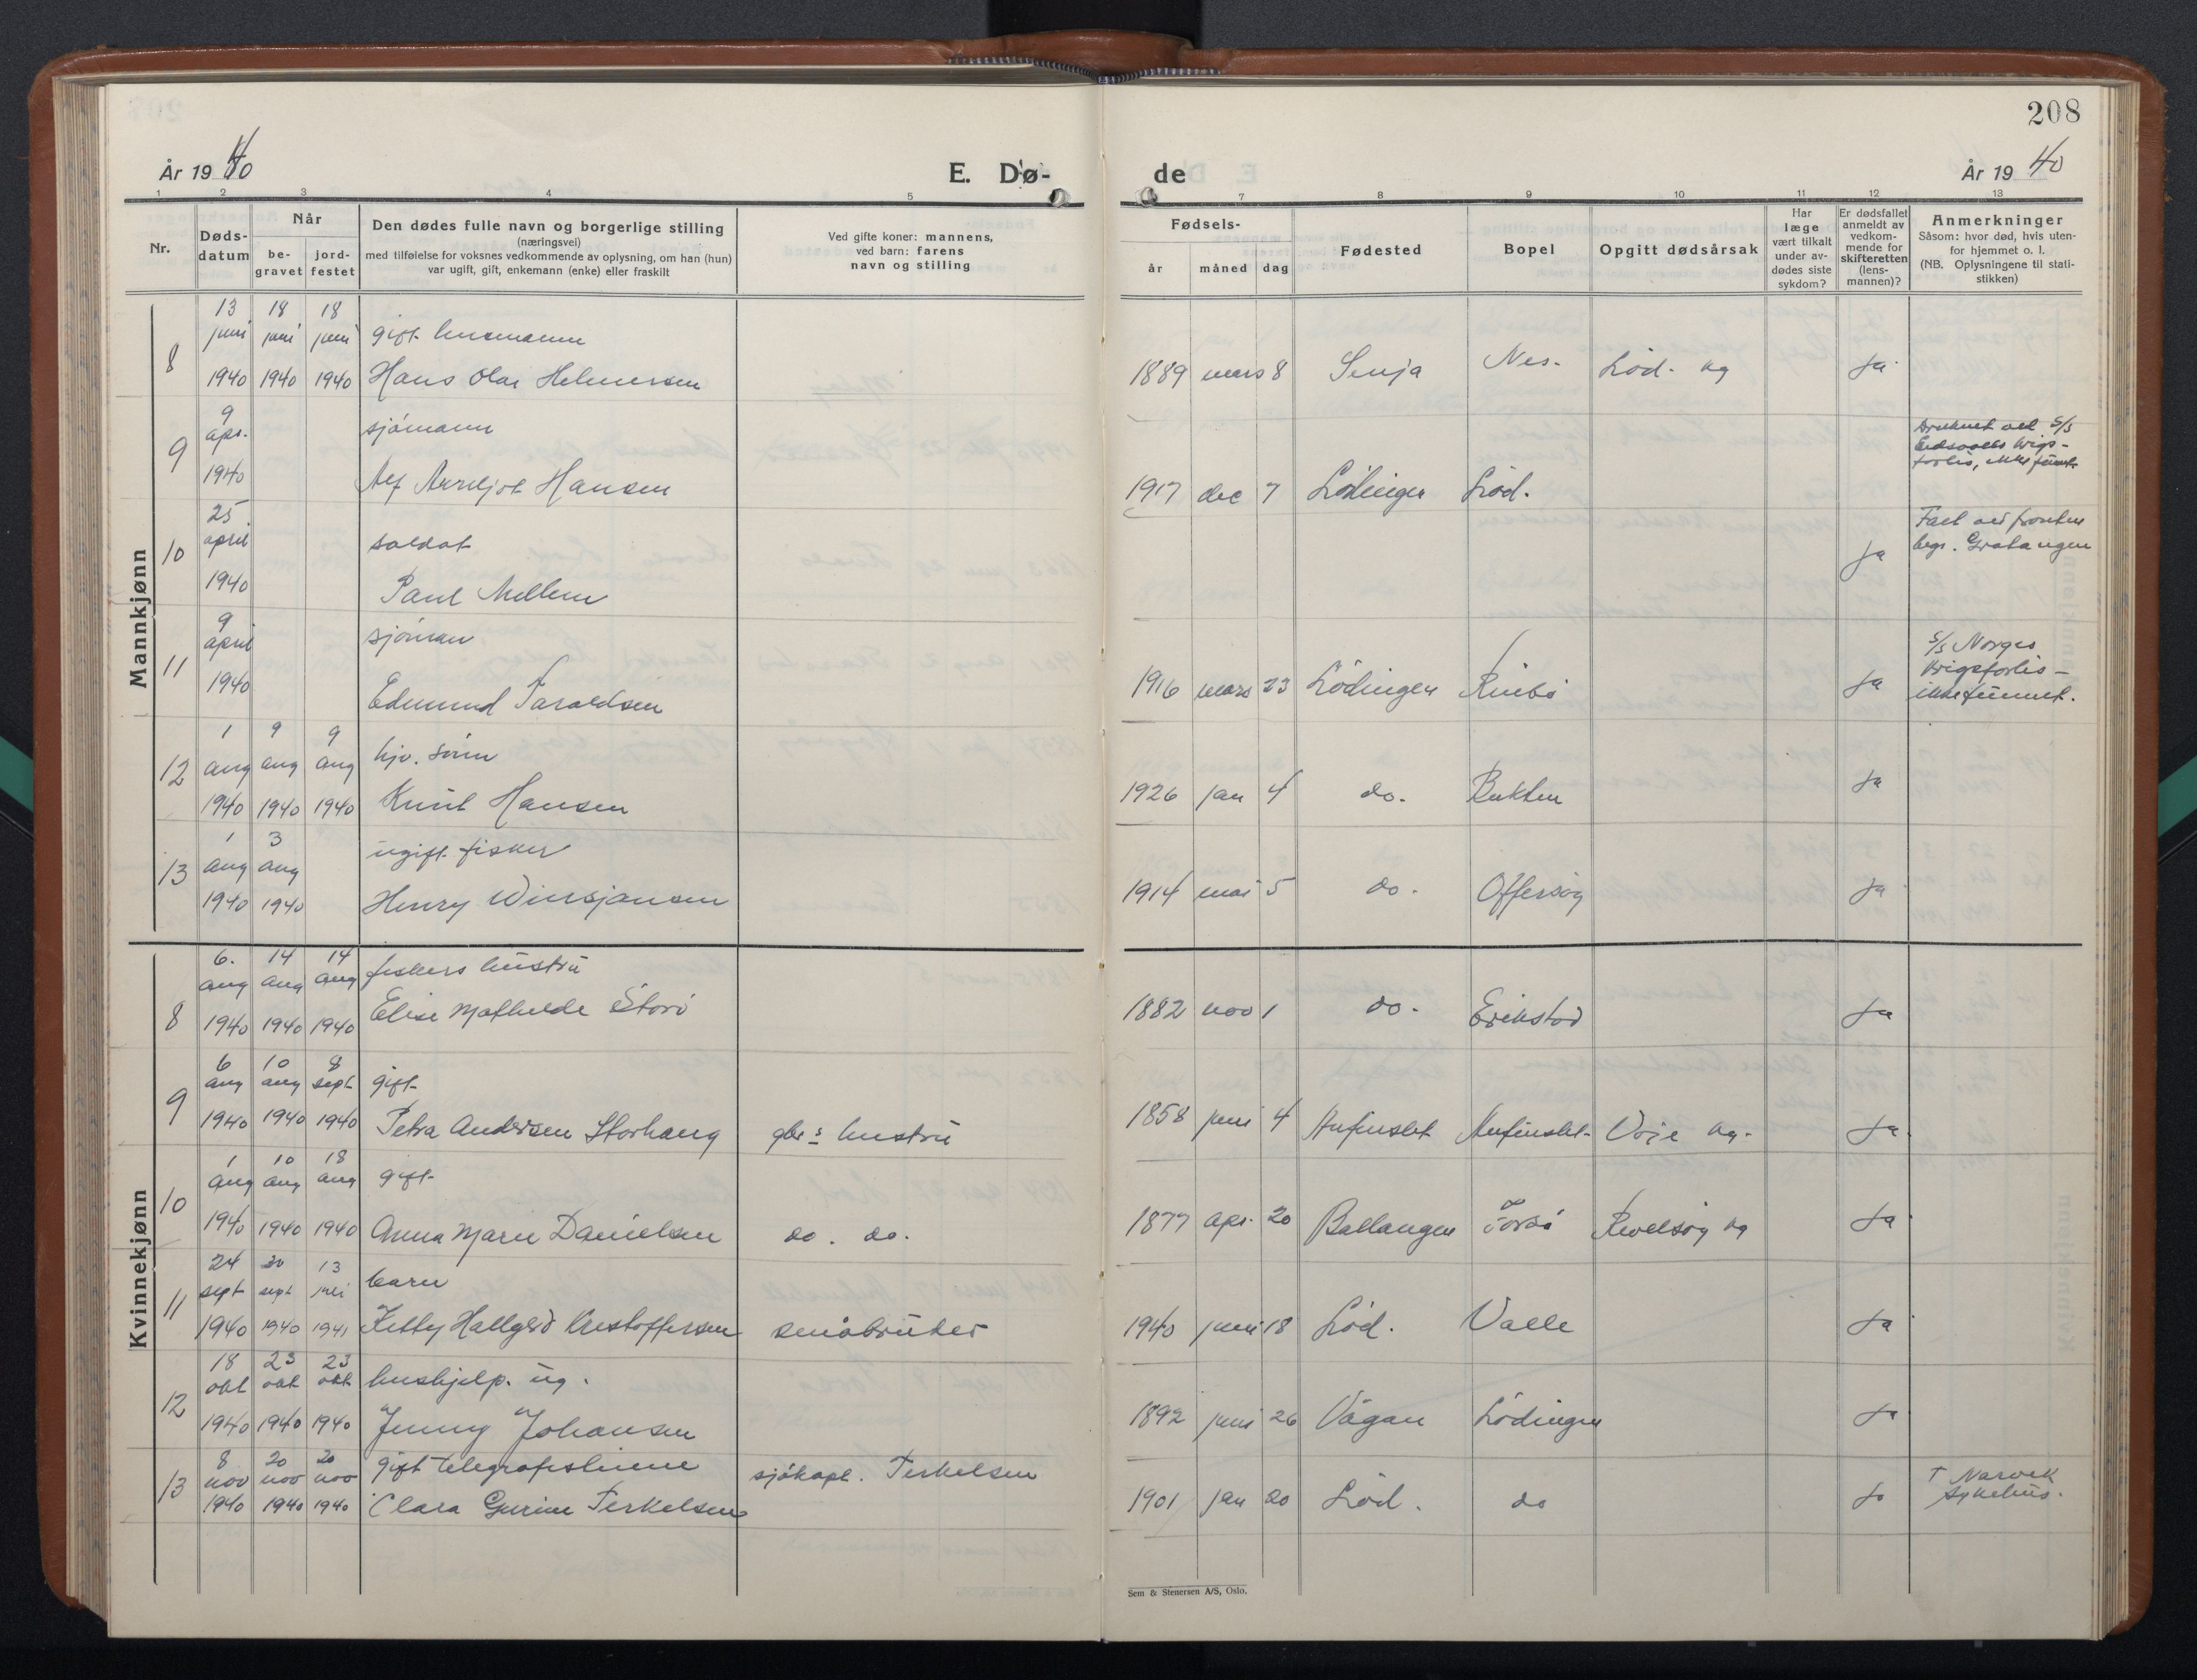 208
År 1940
E. Dø-
de
År 1940
1 2 3 4 5 7 8 9 10 11 12 13
Nr.
Døds-
datum
Når
be-
gravet
jord-
festet
Den dødes fulle navn og borgerlige stilling
(næringsvei)
med tilføielse for voksnes vedkommende av oplysning, om han (hun)
var ugift, gift, enkemann (enke) eller fraskilt
Ved gifte koner: mannens,
ved barn: farens
navn og stilling
Fødsels-
år måned dag
Fødested
Bopel
Opgitt dødsårsak
Har
læge
vært tilkalt
under av-
dødes siste
sykdom?
Er dødsfallet
anmeldt av
vedkom-
mende for
skifteretten
(lens-
mannen)?
Anmerkninger
Såsom: hvor død, hvis uten-
for hjemmet o. l.
(NB. Oplysningene til stati-
stikken)
Mannkjønn
13 18 18
juni juni juni gift husmann
8 1940 1940 1940 Hans Olai Helmersen 1889 mars 8 Senja Nes- Lød. kg ja
9
apr. sjømann
9 1940 Alf Arneljot Hansen 1917 dec 7 Lødingen Lød.
Druknet ved S/S
Eidsvolds krigs-
forlis, ikke funnet
25
april soldat
10 1940 Paul Mellem ja
Falt ved fronten
begr. Gratangen
9
april sjøman
11 1940 Edmund Taraldsen 1916 mars 23 Lødingen Rinbø ja
S/S Norges
krigsforlis -
ikke funnet.
1 9 9
aug aug aug hjv. sønn
12 1940 1940 1940 Knut Hansen 1926 jan 4 do. Bukten ja
1 3
aug aug ugift fisker
13 1940 1940 Henry Winsjansen 1914 mai 5 do. Offersøy ja
Kvinnekjønn
6. 14 14
aug aug aug fiskers hustru
8 1940 1940 1940 Elise Mathilde Storø 1882 nov 1 do. Erikstad ja
6 10 8
aug aug sept gift
9 1940 1940 1940 Petra Andersen Storhaug gbr.s hustru 1858 juni 4 Hufinslet Hufinslet- Voie kg. ja
1 10 18
aug aug aug gift
10 1940 1940 1940 Anna Marie Danielsen do. do. 1877 apr. 20 Ballangen Forså Revelsøy kg ja
24 30 13
sept sept juli barn
11 1940 1940 1941 Jetty Hallgerd Kristoffersen småbruker 1940 juni 18 Lød. Valle ja
18 23 23
okt okt okt hushjelp. ug.
12 1940 1940 1940 Jenny Johansen 1892 juni 26 Vågan Lødingen ja
8 20 20
nov nov nov gift telegrafistinne sjøkapt. Terkelsen
13 1940 1940 1940 Clara Gurine Terkelsen 1901 jan 20 Lød. do ja
† Narvik
sykehus.
Sem & Stenersen A/S, Oslo.